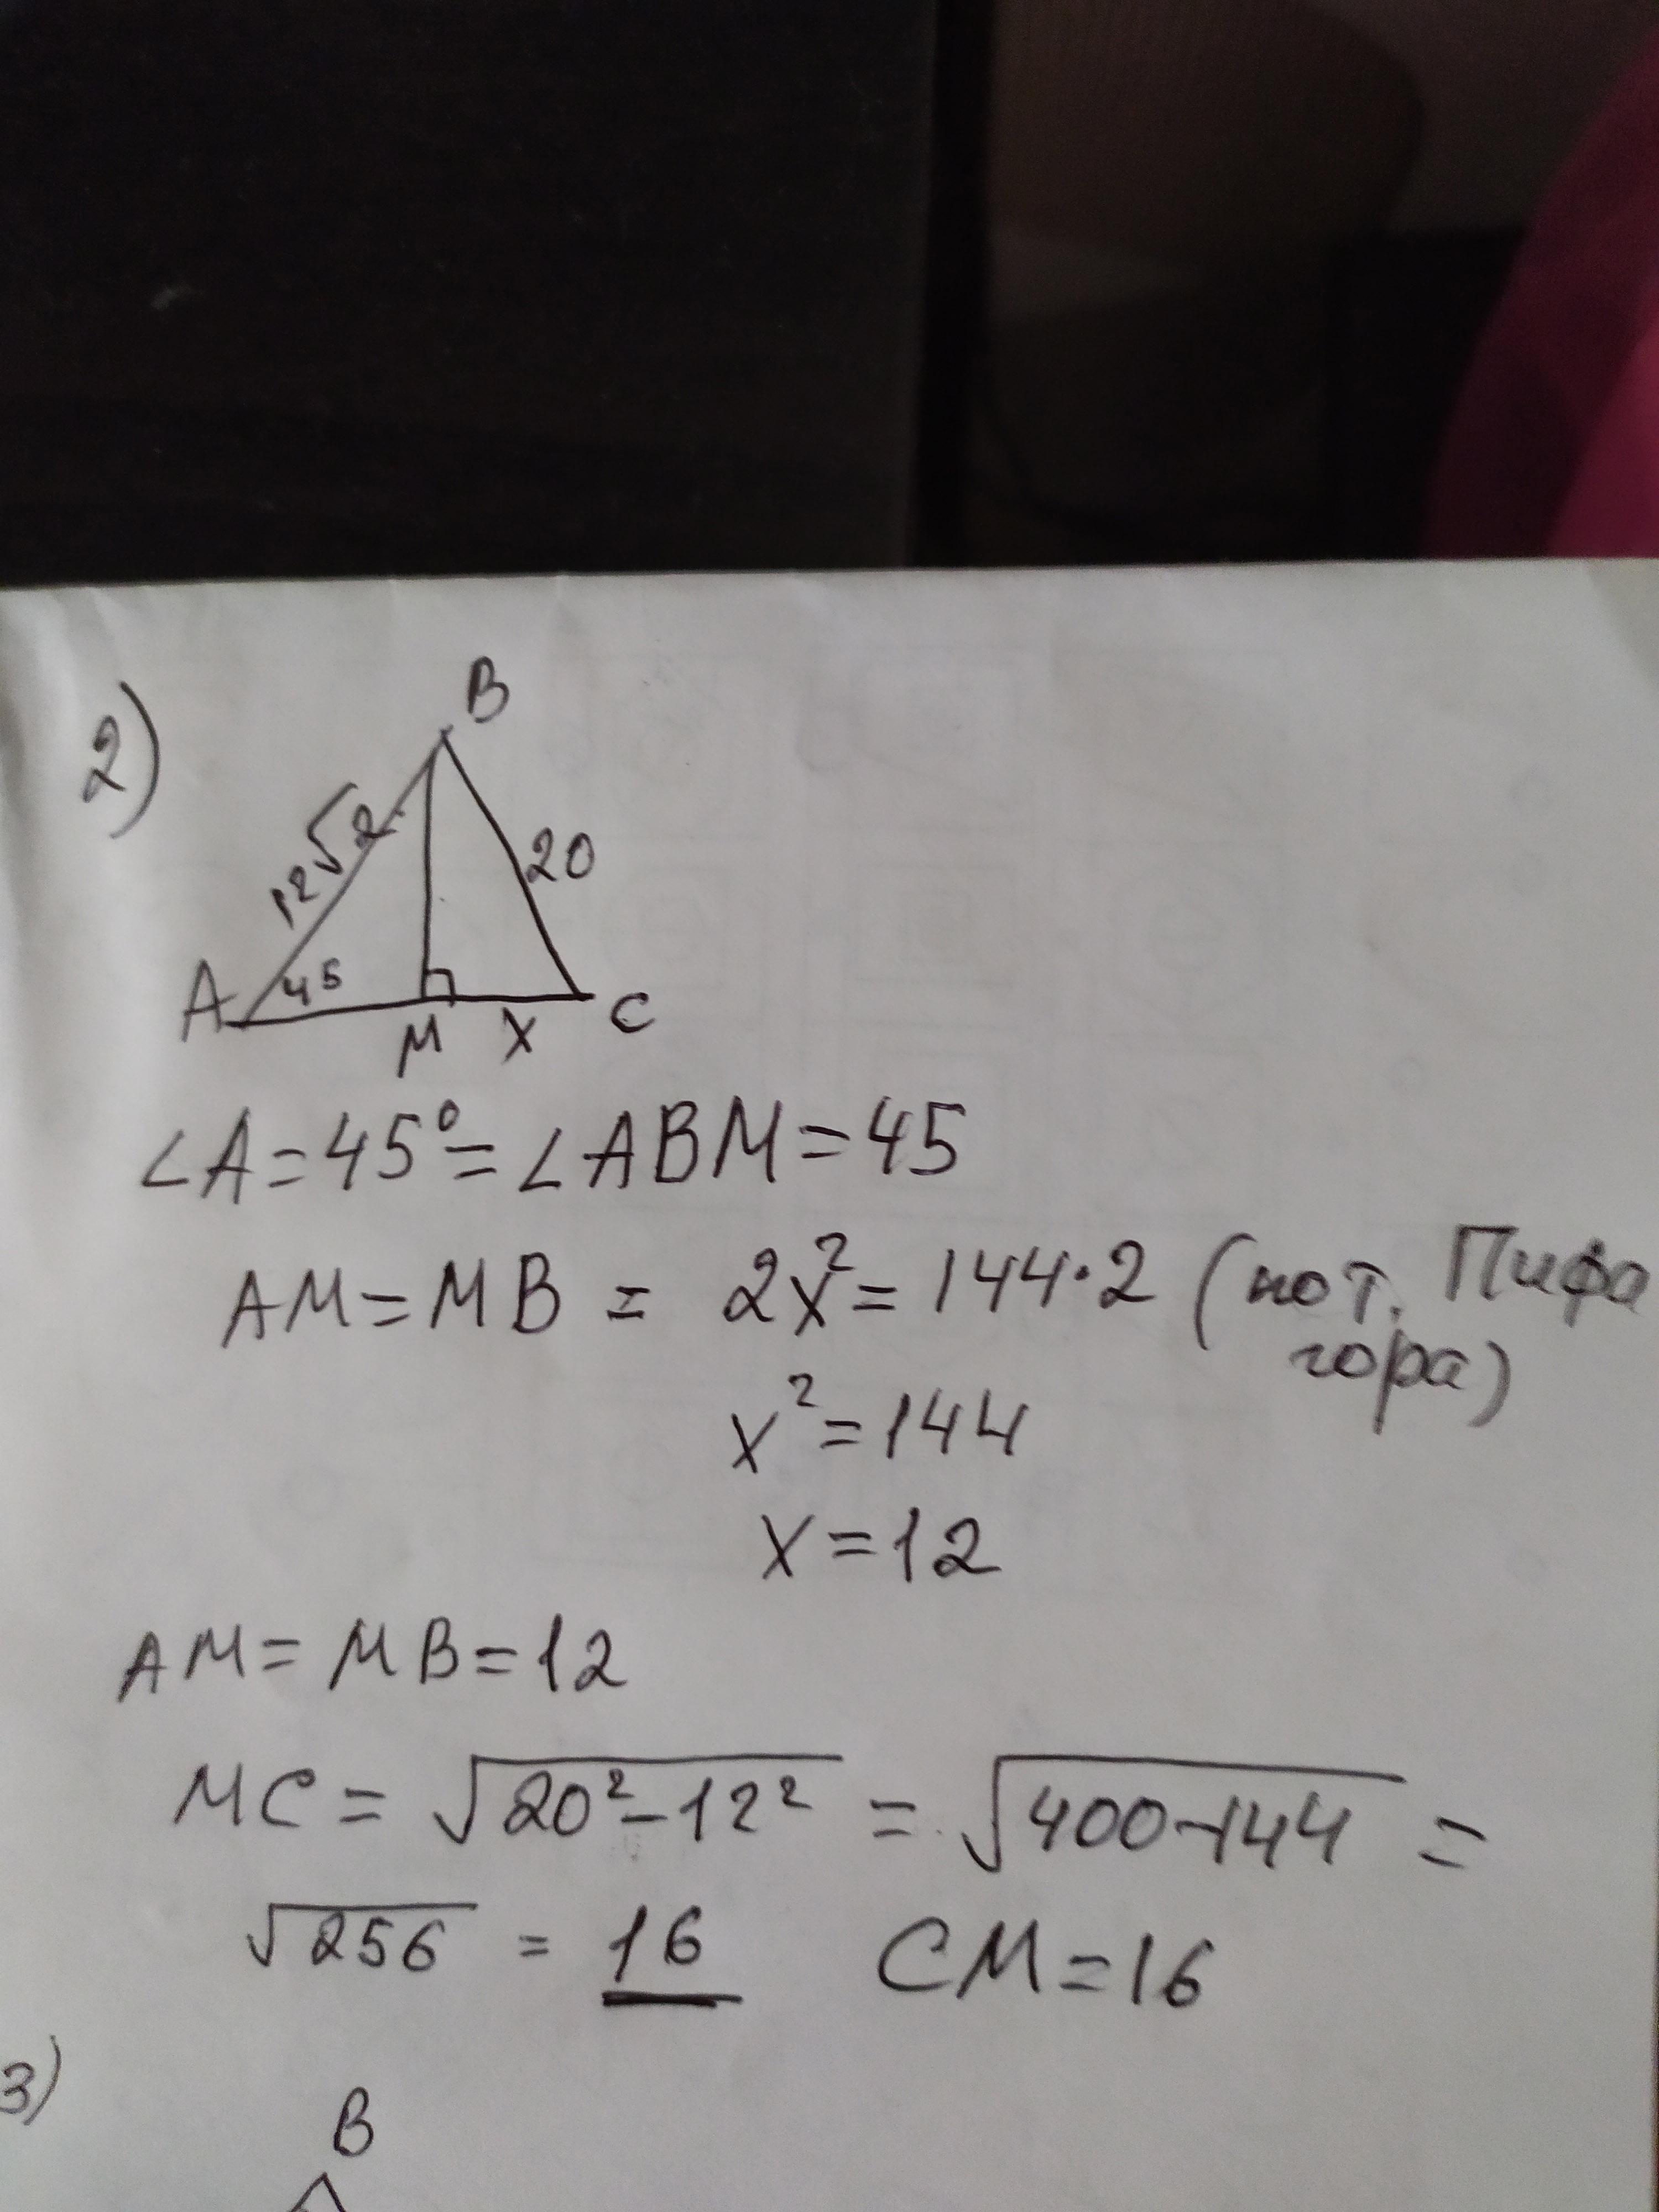 2)
B
12√2
20
A
45
M
X
C
∠A=45°=∠ABM=45
AM=MB = 2x²=144·2 (по т. Пифа
гора)
x²=144
x=12
AM=MB=12
MC=√20²-12² = √400-144 =
√256 = 16 CM=16
3)
B